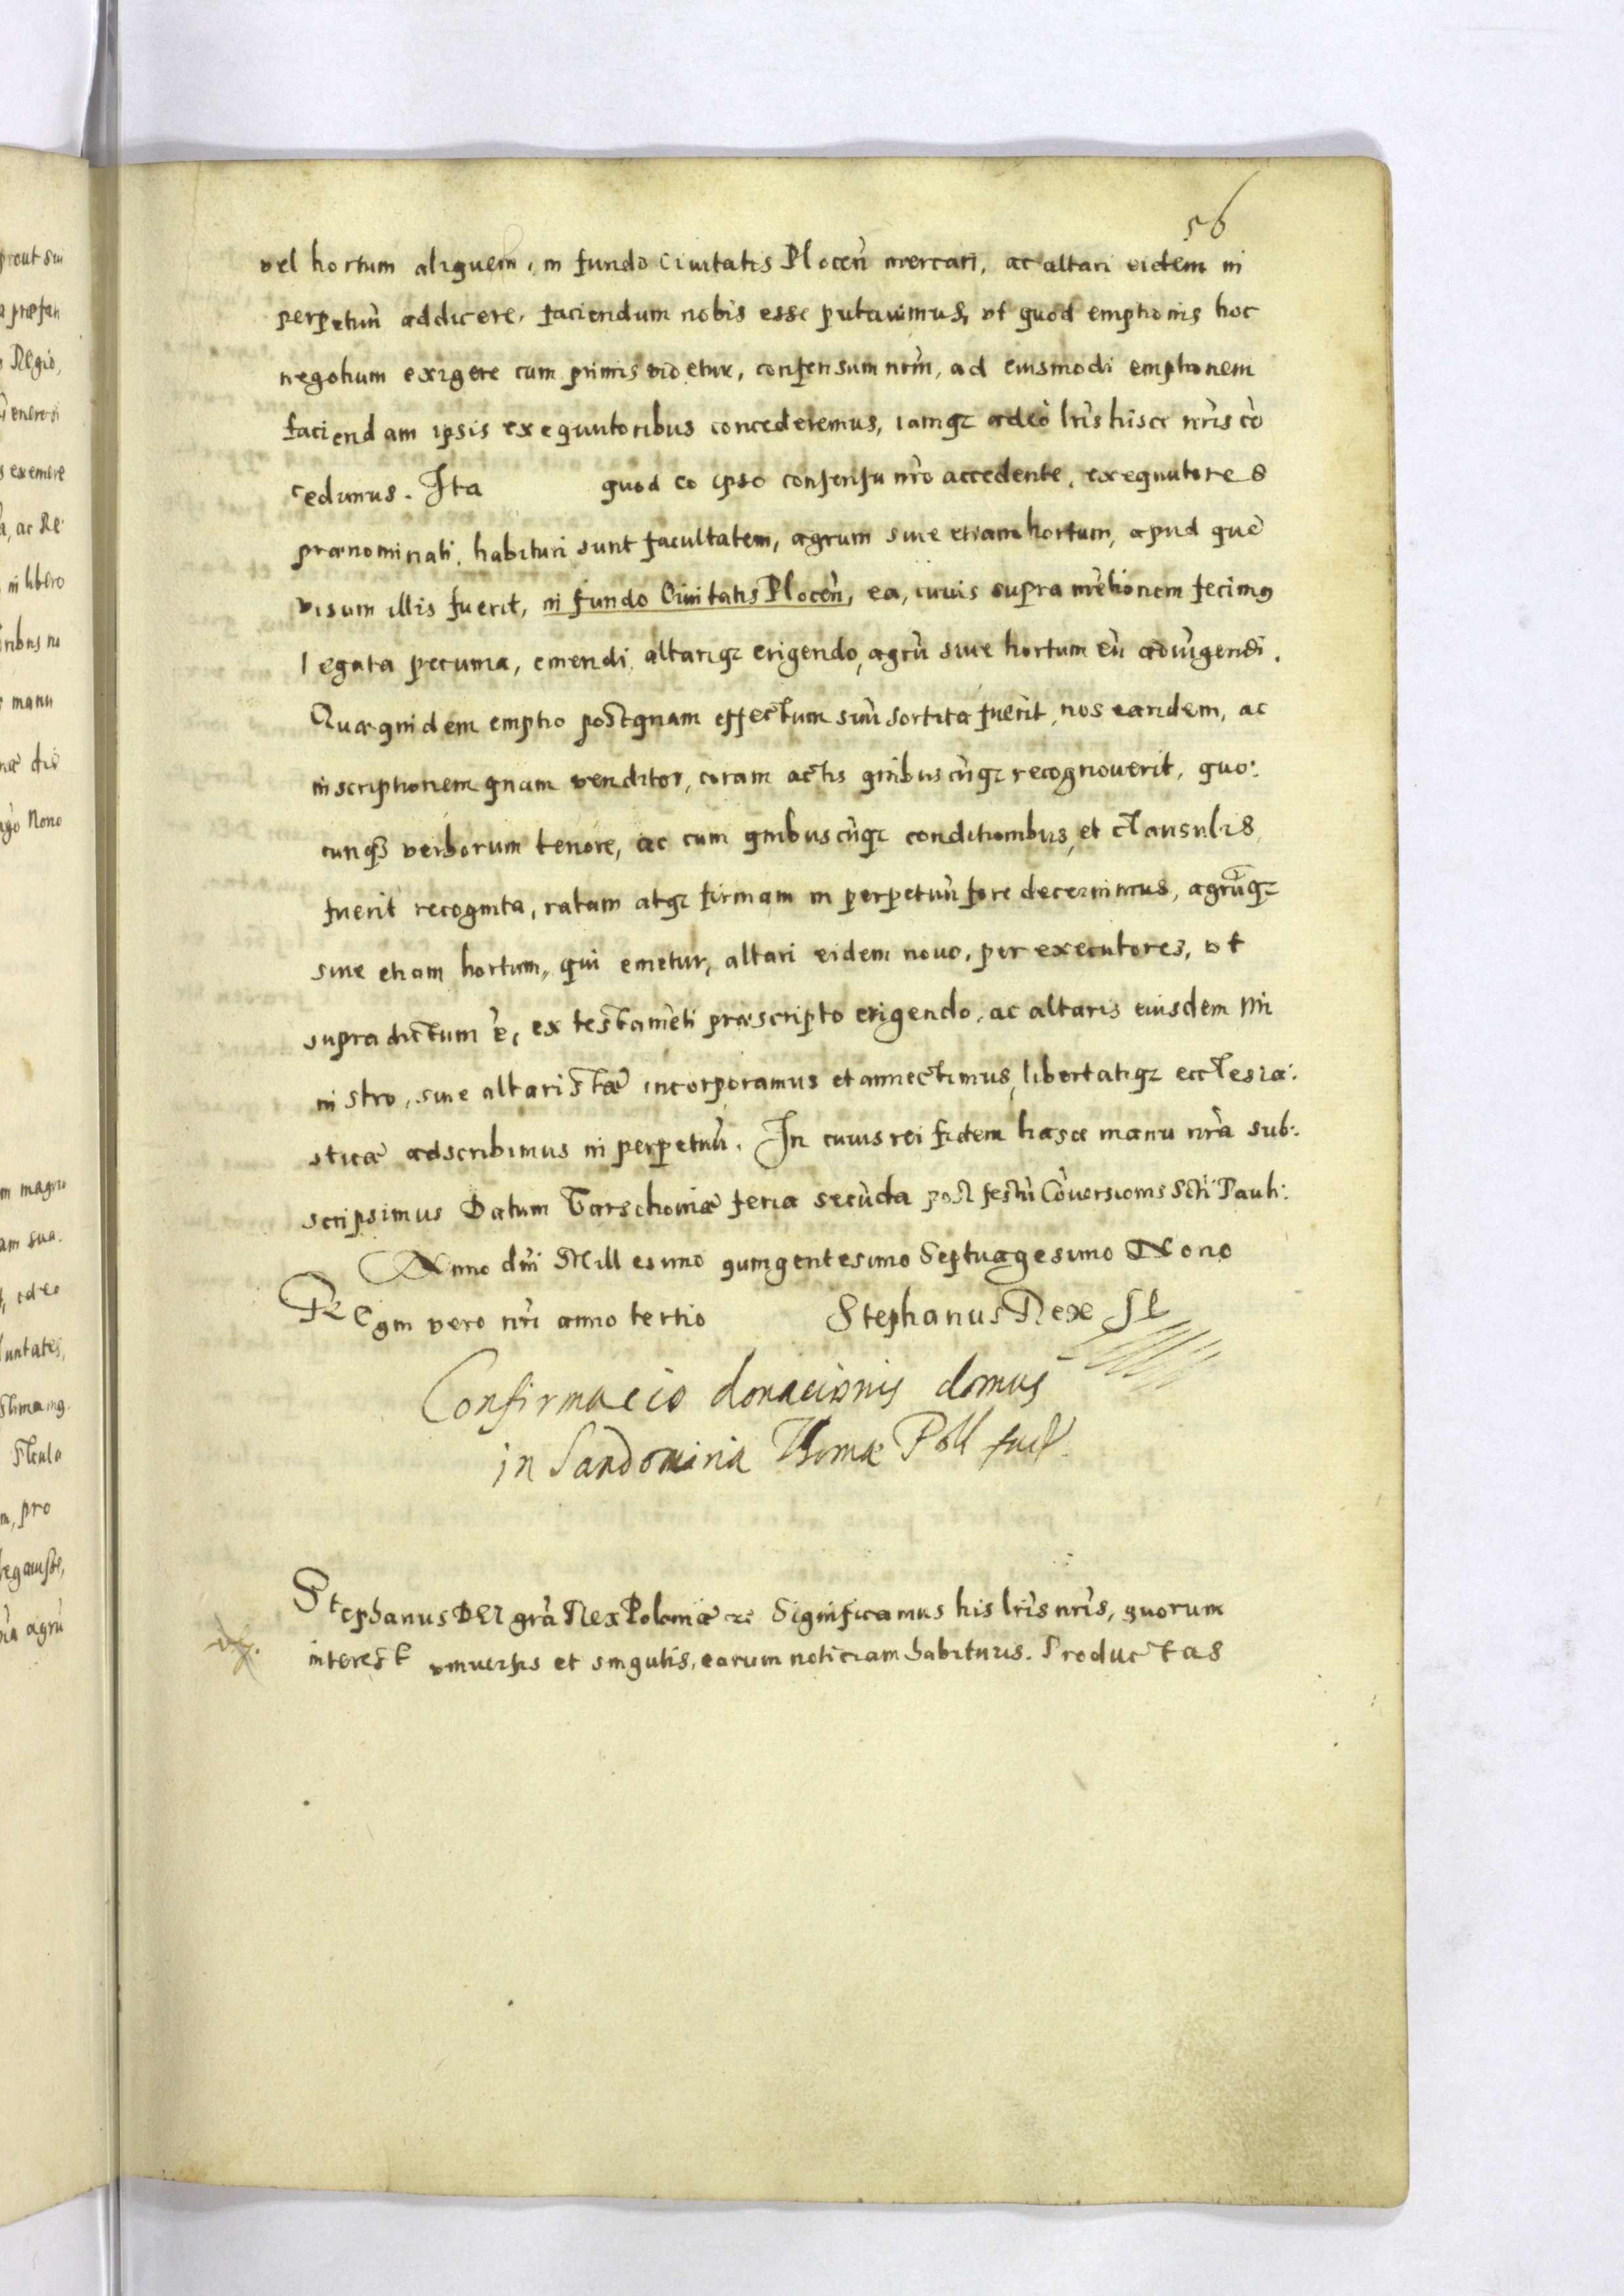 56
vel hortum aliquem, in fundo Ciuitatis Plocen̄ mercari, ac altari eidem in
perpetuū addicere, faciendum nobis esse putauimus, vt quod emptionis hoc
negotium exigere cum primis videtur, consensum nrm̄, ad eiusmodi emptionem
faciendam ipsis exequutoribus concederemus, iamq; adeò lris̄ hisce nris̄ cō
cedimus. Ita quod eo ipso consensu nrō accedente, exequutores
prænominati, habituri sunt facultatem, agrum siue etiam hortum, apud quē
visum illis fuerit, in fundo Ciuitatis Plocen̄, ea, cuius supra mētionem fecimus
legata pecunia, emendi, altariq; erigendo, agrū siue hortum eū adiūgendi.
Quæ quidem emptio postquam effectum suū sortita fuerit, nos eandem, ac
inscriptionem quam venditor, coram actis quibuscūq; recognouerit, quo:
cunq; verborum tenore, ac cum quibuscūq; conditionibus, et clausulis
fuerit recognita, ratam atq; firmam in perpetuū fore decernimus, agrūq;
siue etiam hortum, qui emetur, altari eidem nouo, per executores, vt
supra dictum ē, ex testamēti præscripto erigendo, ac altaris eiusdem mi
nistro, siue altaristæ incorporamus et annectimus, libertatiq; ecclesia:
sticæ adscribimus in perpetuū. In cuius rei fidem hasce manu nrā sub:
scripsimus Datum Varschouiæ feria secūda post festū Cōuersionis Scti Pauli:
Anno dni̅ Millesimo quingentesimo Septuagesimo Nono
Regni vero nri̅ anno tertio Stephanus Rex
Confirmacio donacionis domus
in Sandomiria Thomæ Poll
Stephanus DEI grā Rex Poloniæ &c Significamus his lris̄ nris̄, quorum
interest vniuersis et singulis, earum noticiam habituris. Productas